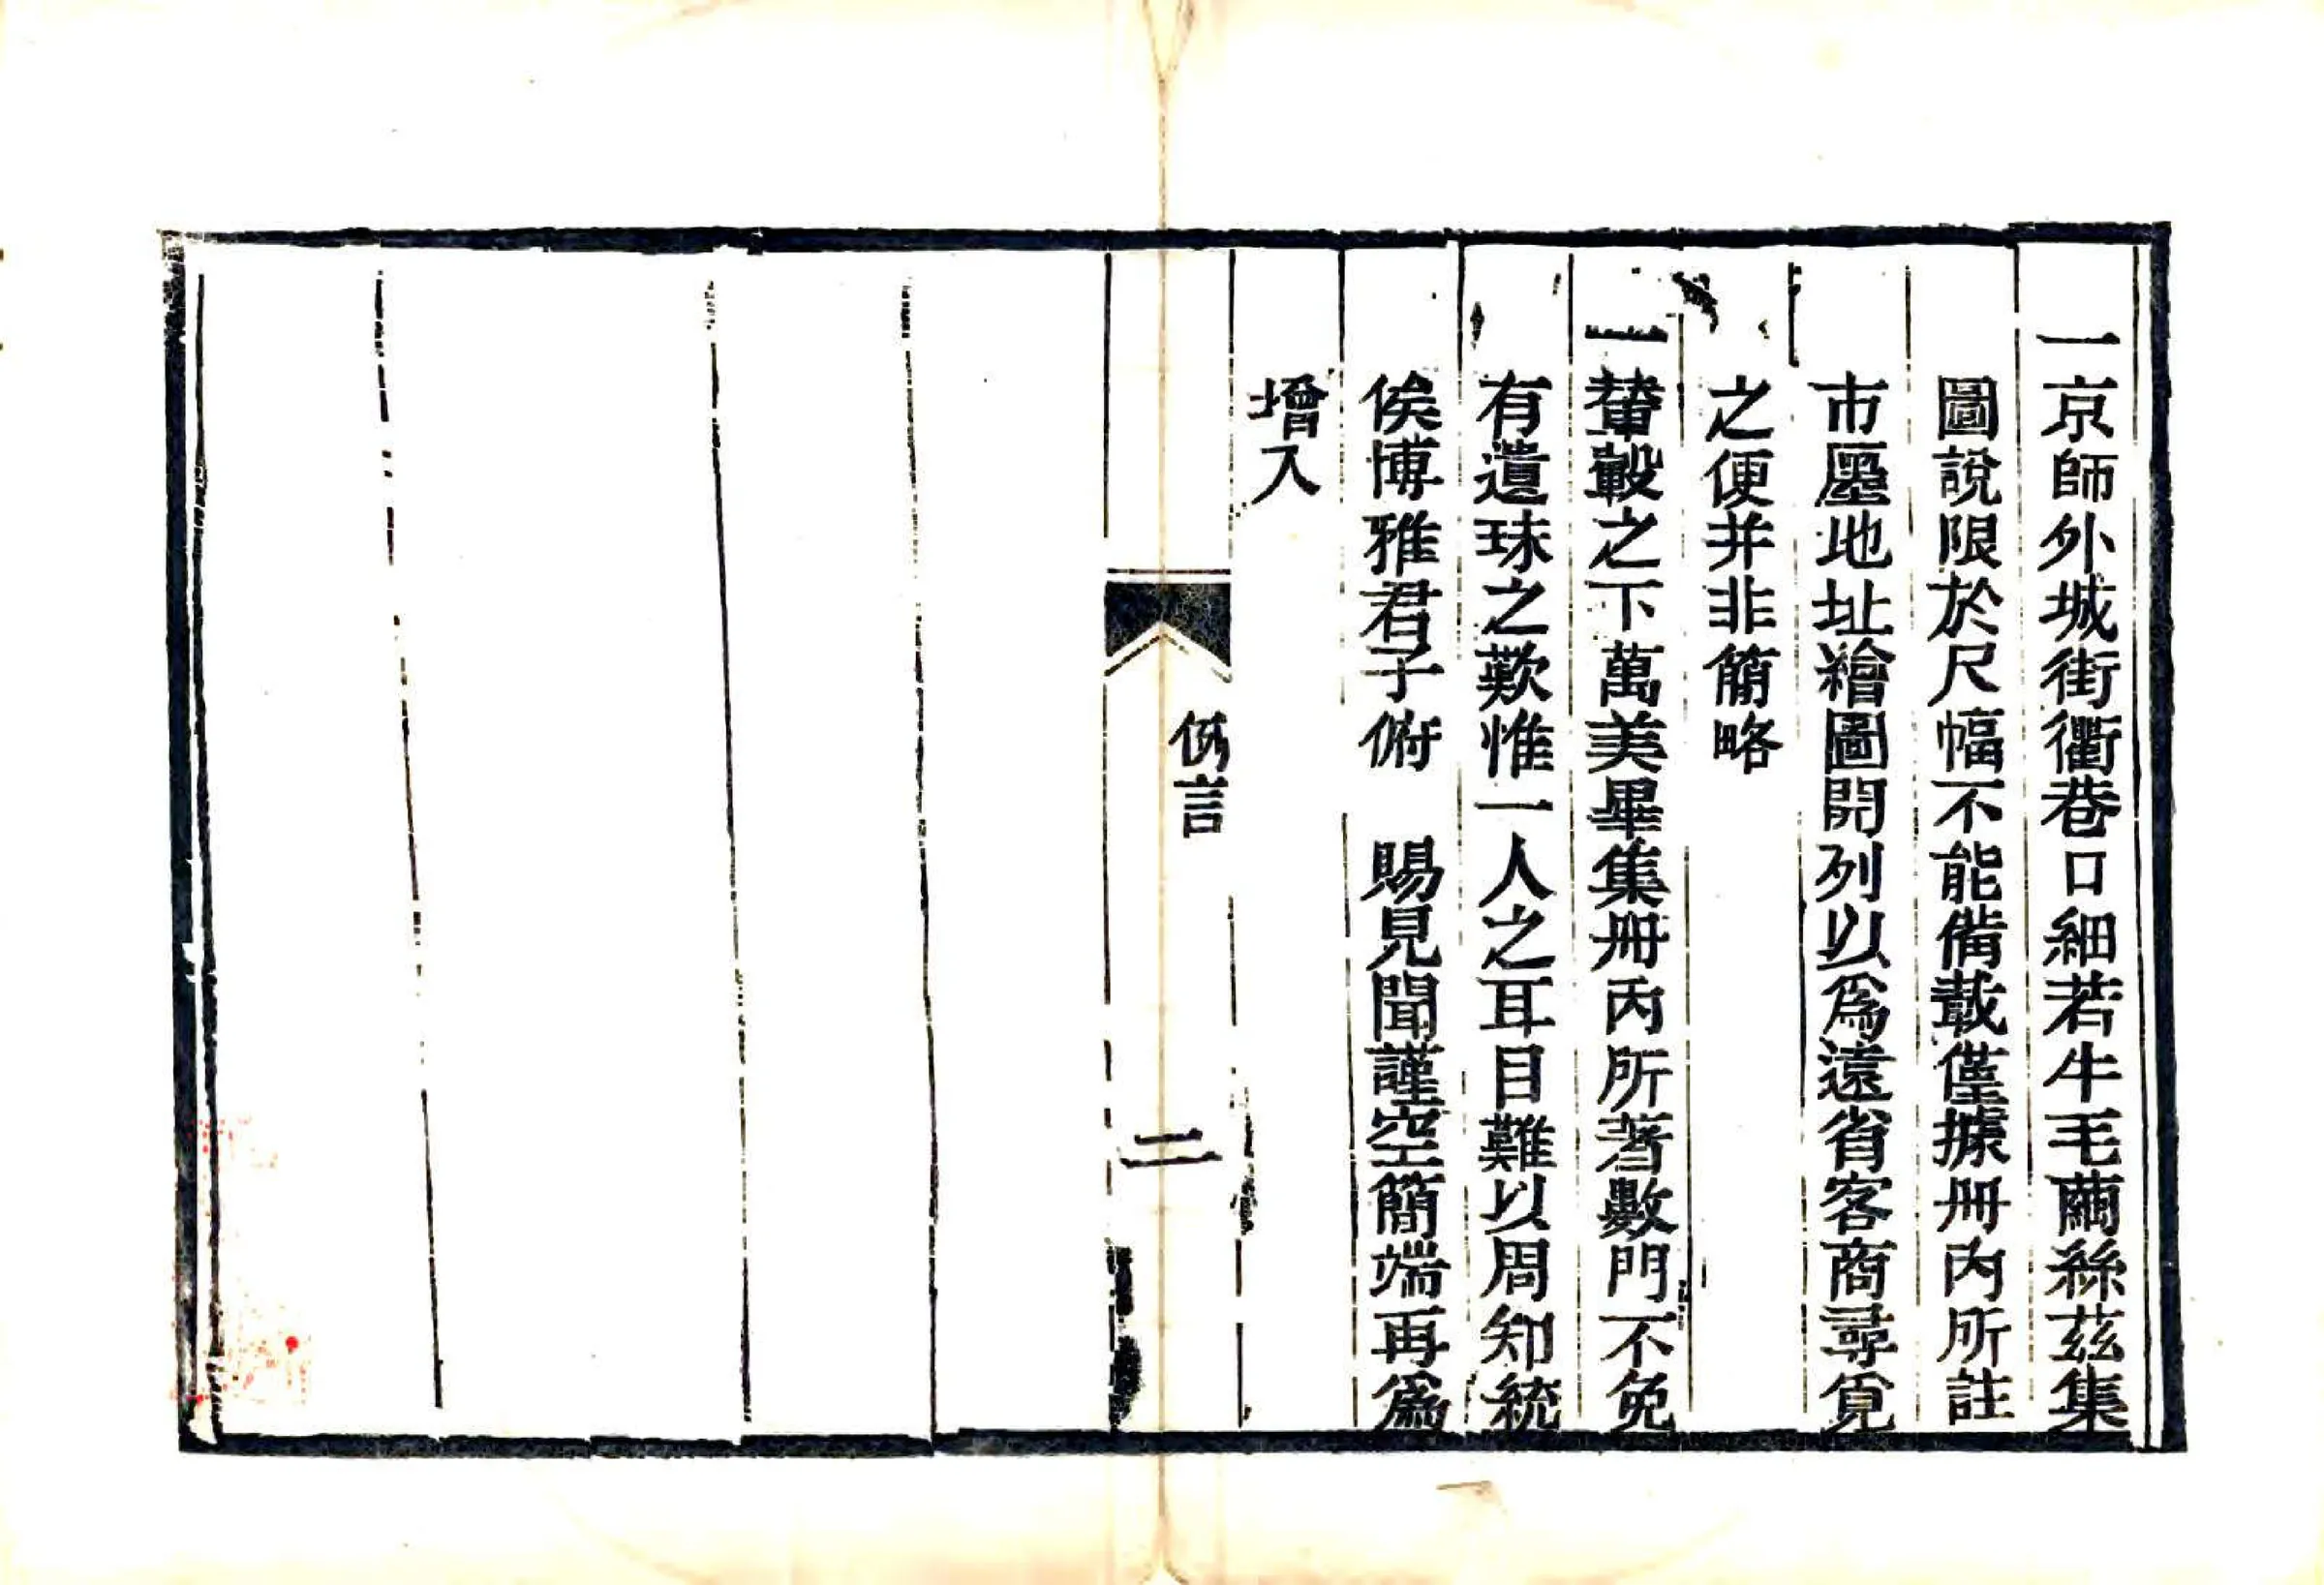 一京師外城街衢巷口細若牛毛繭絲茲集
圖說限於尺幅不能備載僅據册內所註
市廛地址繪圖開列以爲遠省客商尋覓
之便并非簡略
一輦轂之下萬美畢集册內所著數門不免
有遺珠之歎惟一人之耳目難以周知統
俟博雅君子俯　賜見聞謹空簡端再爲
增入
例言
二